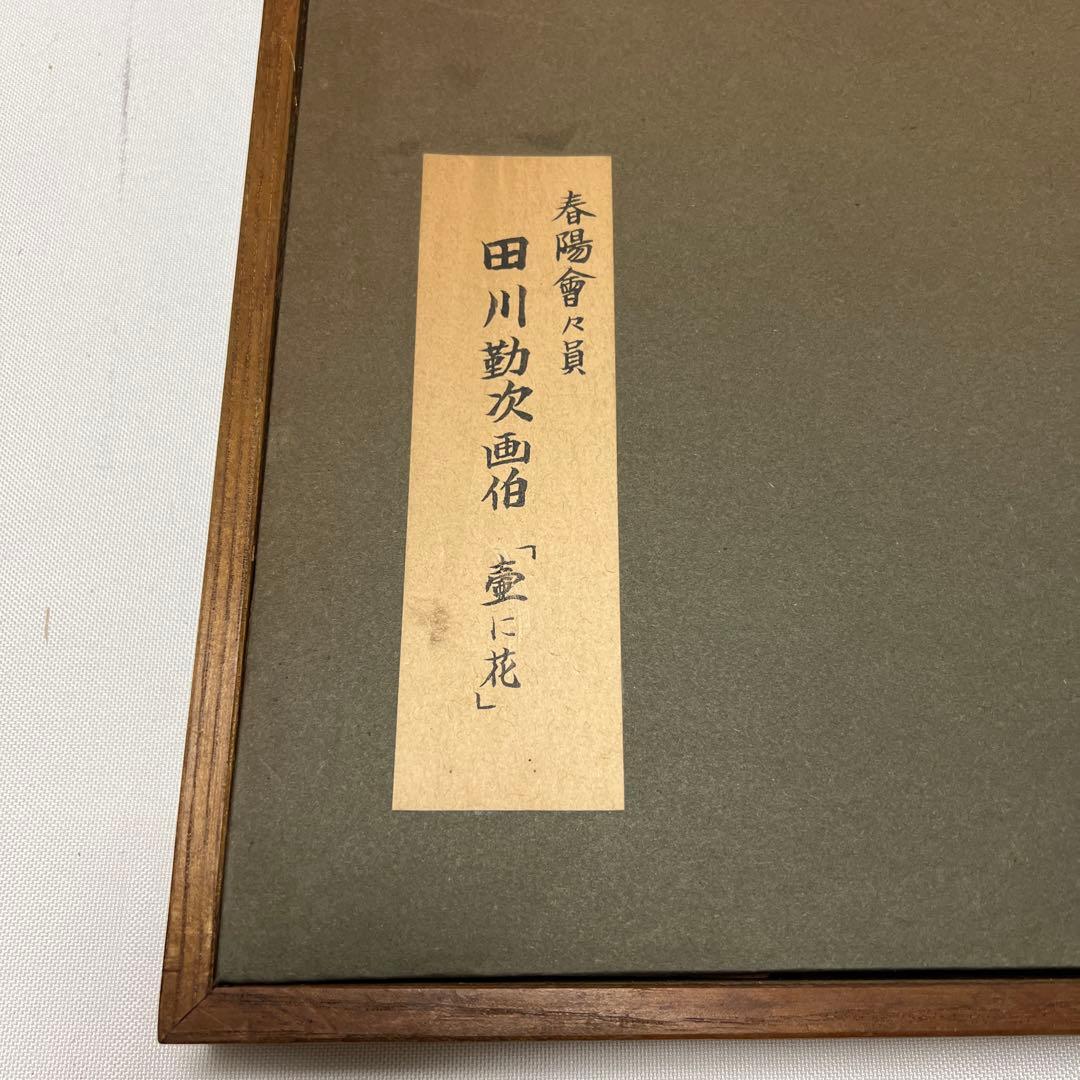 春陽會々員
田川勤次画伯「壷に花」